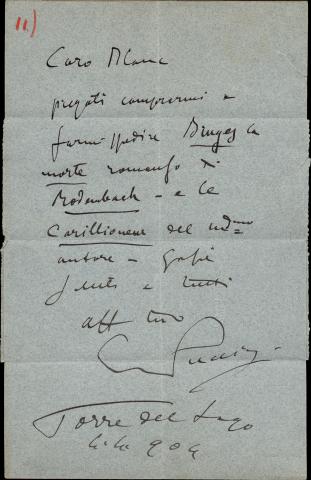 11)
Caro
pregoti comprarmi e
farmi spedire Bruges la
morte romanzo di
Rodenbach - e le
Carillioneur del med mo
autore - 
saluti a tutti
aff tuo
G Puccini
Torre del Lago
904